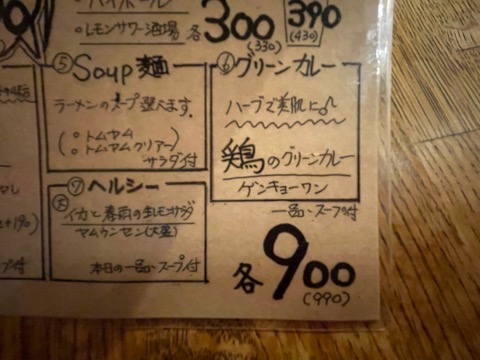 ハイボール
・レモンサワー酒場 各300
(330)
390
(430)
⑤Soup 麺
ラーメンのスープ選べます。
(○トムヤム
○トムヤムクリアー)
サラダ付
⑥グリーンカレー
ハーブで美肌に♪
鶏のグリーンカレー
ゲンキョーワン
一品、スープ付
⑦ヘルシー
イカと春雨の生レモンサラダ
ヤムウンセン(大盛)
本日の一品、スープ付
+190)
各900
(990)